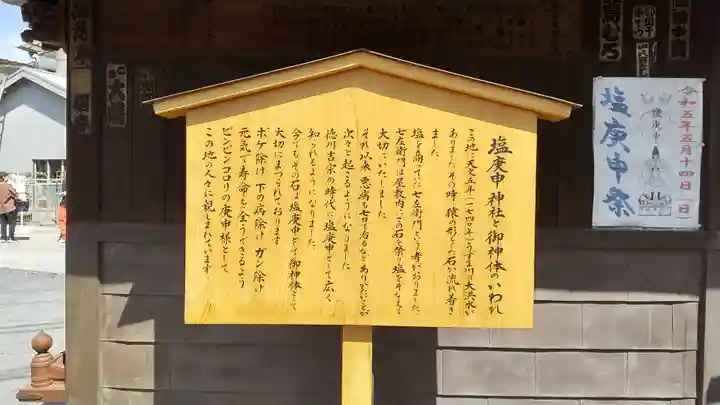 塩庚申神社と御神体のいわれ
この地に天文五年(一七四〇年)うずま川の大洪水が
ありました その時 猿の形をした石が流れ着き
ました
塩を商っていた七左衛門という者がおりました
七左衛門は屋敷内にこの石を祭り塩を供えて
大切にいたしました
それ以来 悪病も七日で治るなどありがたいことが
次々と起こるようになりました
徳川吉宗の時代に塩庚申として広く
知られるようになりました
今でもその石は塩庚申として御神体として
大切にまつられております
ボケ除け 下の病除け ガン除け
元気で寿命を全うできるよう
ピンピンコロリの庚申様として
この地の人々に親しまれています
令和五年五月十四日(日)
塩庚申祭